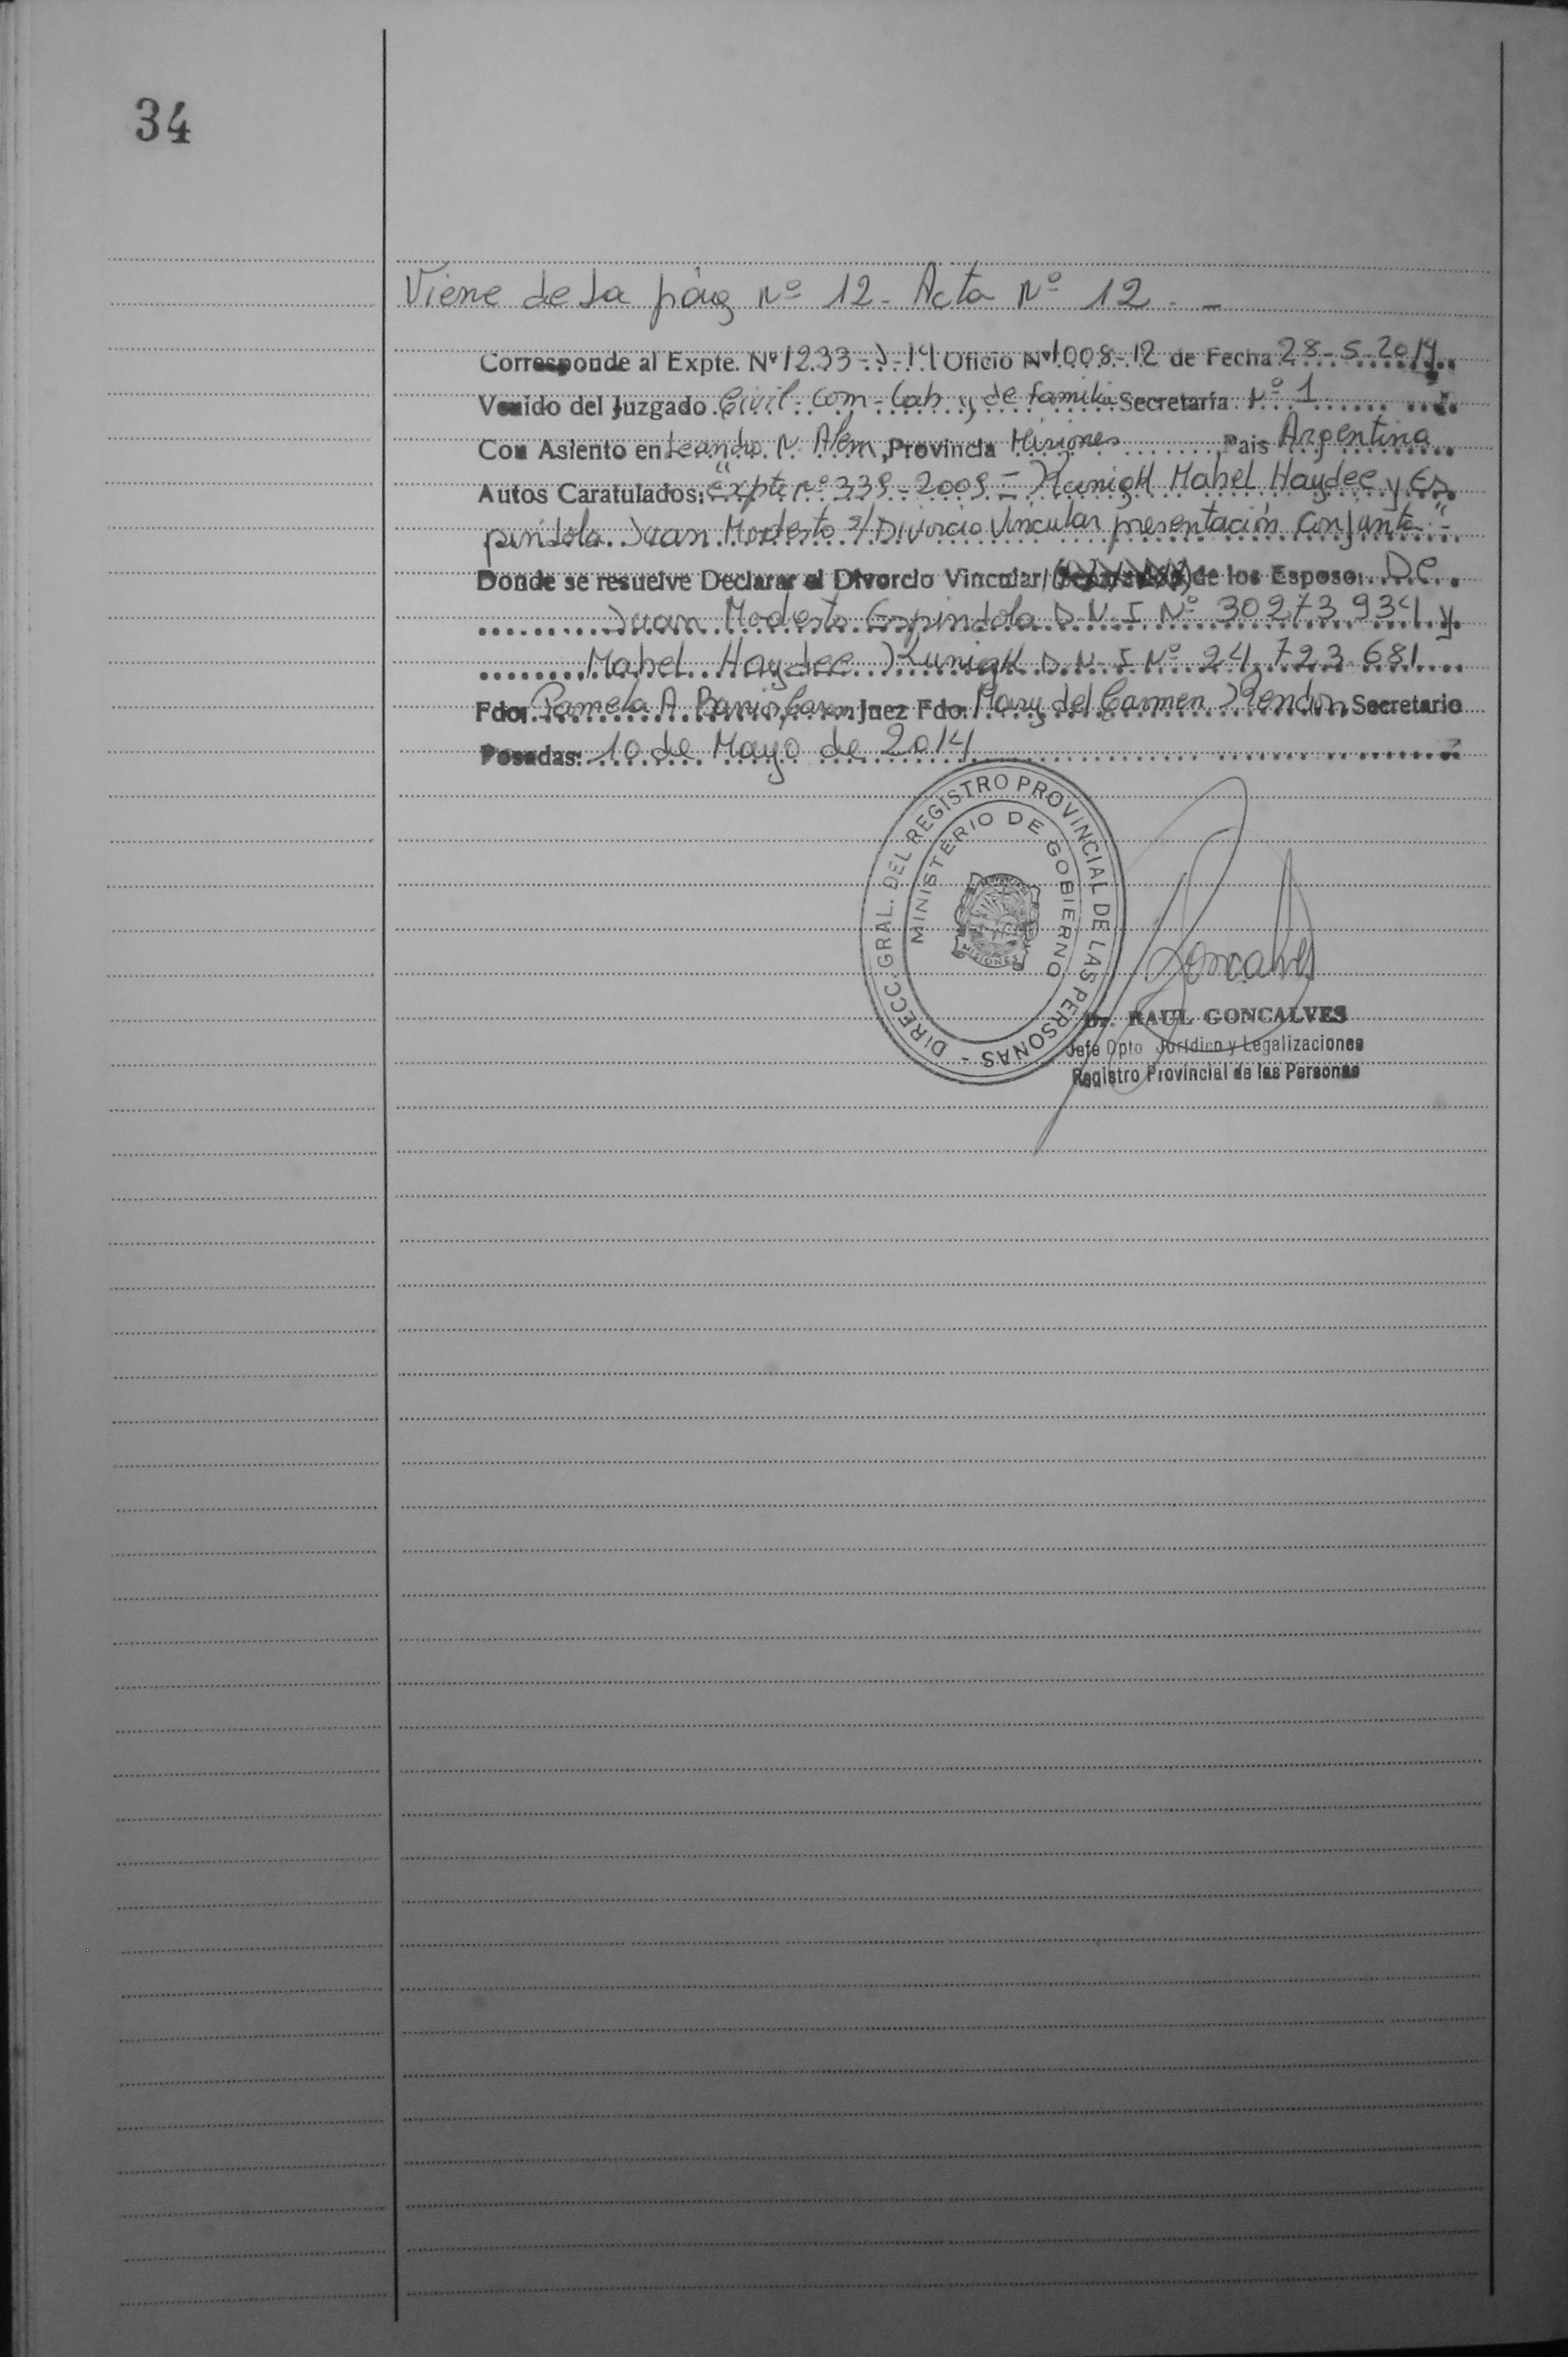 34
Viene de la pág Nº 12 - Acta Nº 12 - -
Corresponde al Expte. Nº 1233-J-14 Oficio Nº 1008-12 de Fecha 28-5-2014
Venido del Juzgado Civil-Com-Lab y de Familia Secretaría Nº 1
Con Asiento en Leandro N Alem, Provincia Misiones, País Argentina
Autos Caratulados: "Expte Nº 339-2009 - Kunigk Mabel Haydee y Es
pindola Juan Modesto s/ Divorcio Vincular presentación Conjunta"-
Donde se resuelve Declarar el Divorcio Vincular/ de los Esposo: De
Juan Modesto Espindola D.N.I Nº 30273934 y
Mabel Haydee Kunigk D.N.I Nº 24.723.681
Fdo: Pamela A. Juez Fdo: Mary del Carmen Secretario
Posadas: 10 de Mayo de 2014
DIRECC. GRAL. DEL REGISTRO PROVINCIAL DE LAS PERSONAS -
MINISTERIO DE GOBIERNO
MISIONES
Goncalves
Dr. RAUL GONCALVES
Jefe Dpto Jurídico y Legalizaciones
Registro Provincial de las Personas